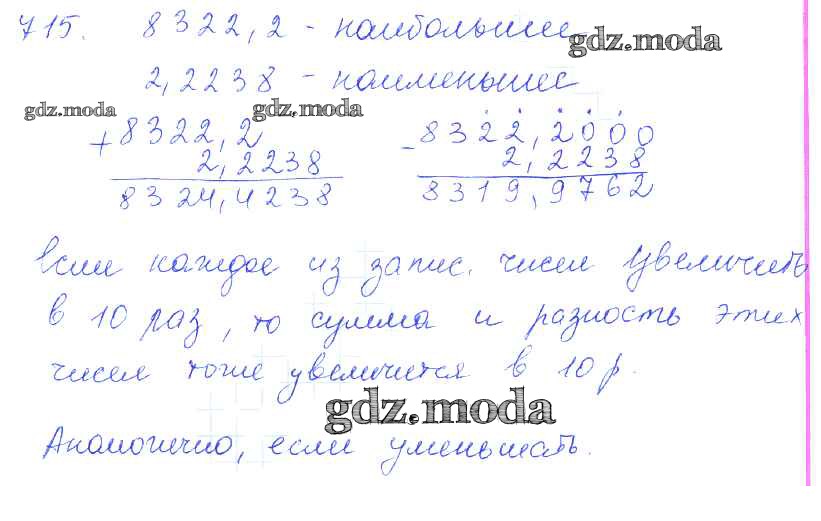 715. 8322,2 - наибольшее
gdz.moda
2,2238 - наименьшее
gdz.moda gdz.moda
+ 8322,2 - 8322,2000
2,2238 2,2238
8324,4238 8319,9762
Если каждое из запис. чисел увеличить
в 10 раз, то сумма и разность этих
чисел тоже увеличится в 10 р.
gdz.moda
Аналогично, если уменьшать.